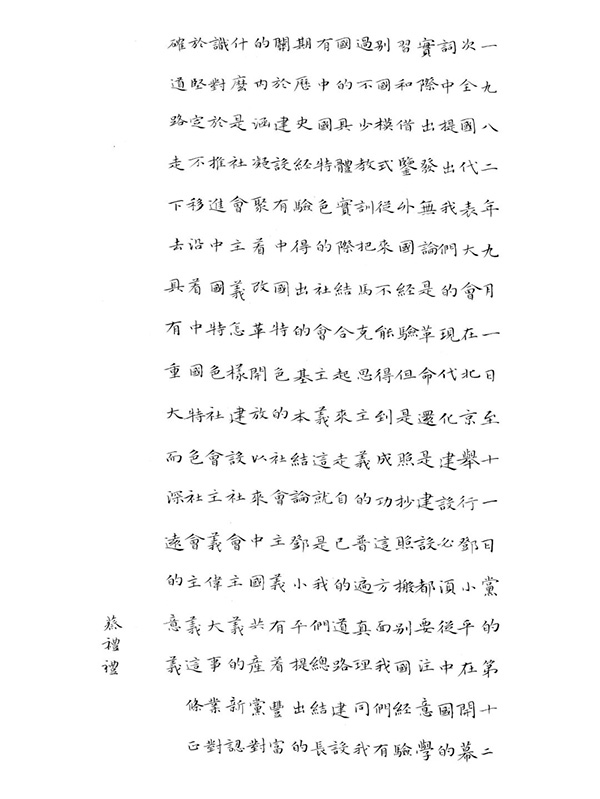 一九八二年九月一日至十一日黨的第十二
次全國代表大會在北京舉行鄧小平在開幕
詞中提出我們的現代化建設必須從中國的
實際出發無論是革命還是建設都要注意學
習和借鑒外國經驗但是照抄照搬别國經驗
别國模式從來不能得到成功這方面我們有
過不少教訓把馬克思主義的普遍真理同我
國的具體實際結合起來走自己的道路建設
有中國特色的社會主義這就是我們總結長
期歷史經驗得出的基本結論鄧小平提出的
關於建設有中國特色的社會主義有着豐富
的內涵凝聚着改革開放以來中國共產黨對
什麼是社會主義怎樣建設社會主義的新認
識對於推進中國特色社會主義偉大事業對
於堅定不移沿着中國特色社會主義這條正
確道路走下去具有重大而深遠的意義
蔡禮禮